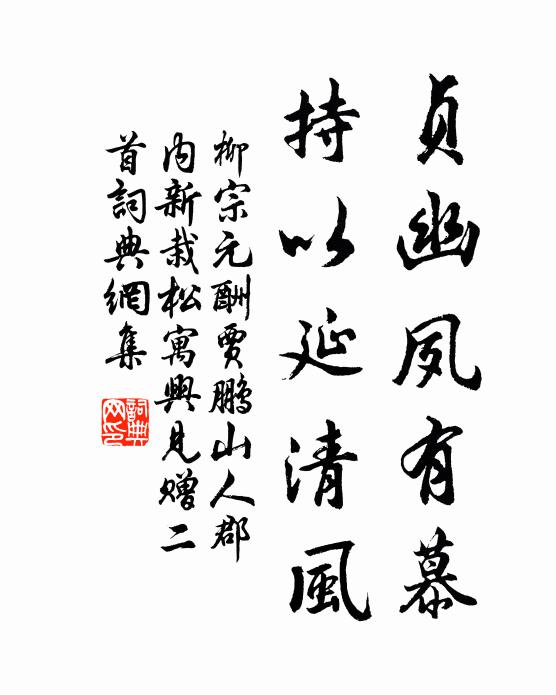 貞幽夙有慕
持以延清風
柳宗元酬賈鵬山人郡
內新栽松寓興見贈二
首詞典網集
詞典
网印